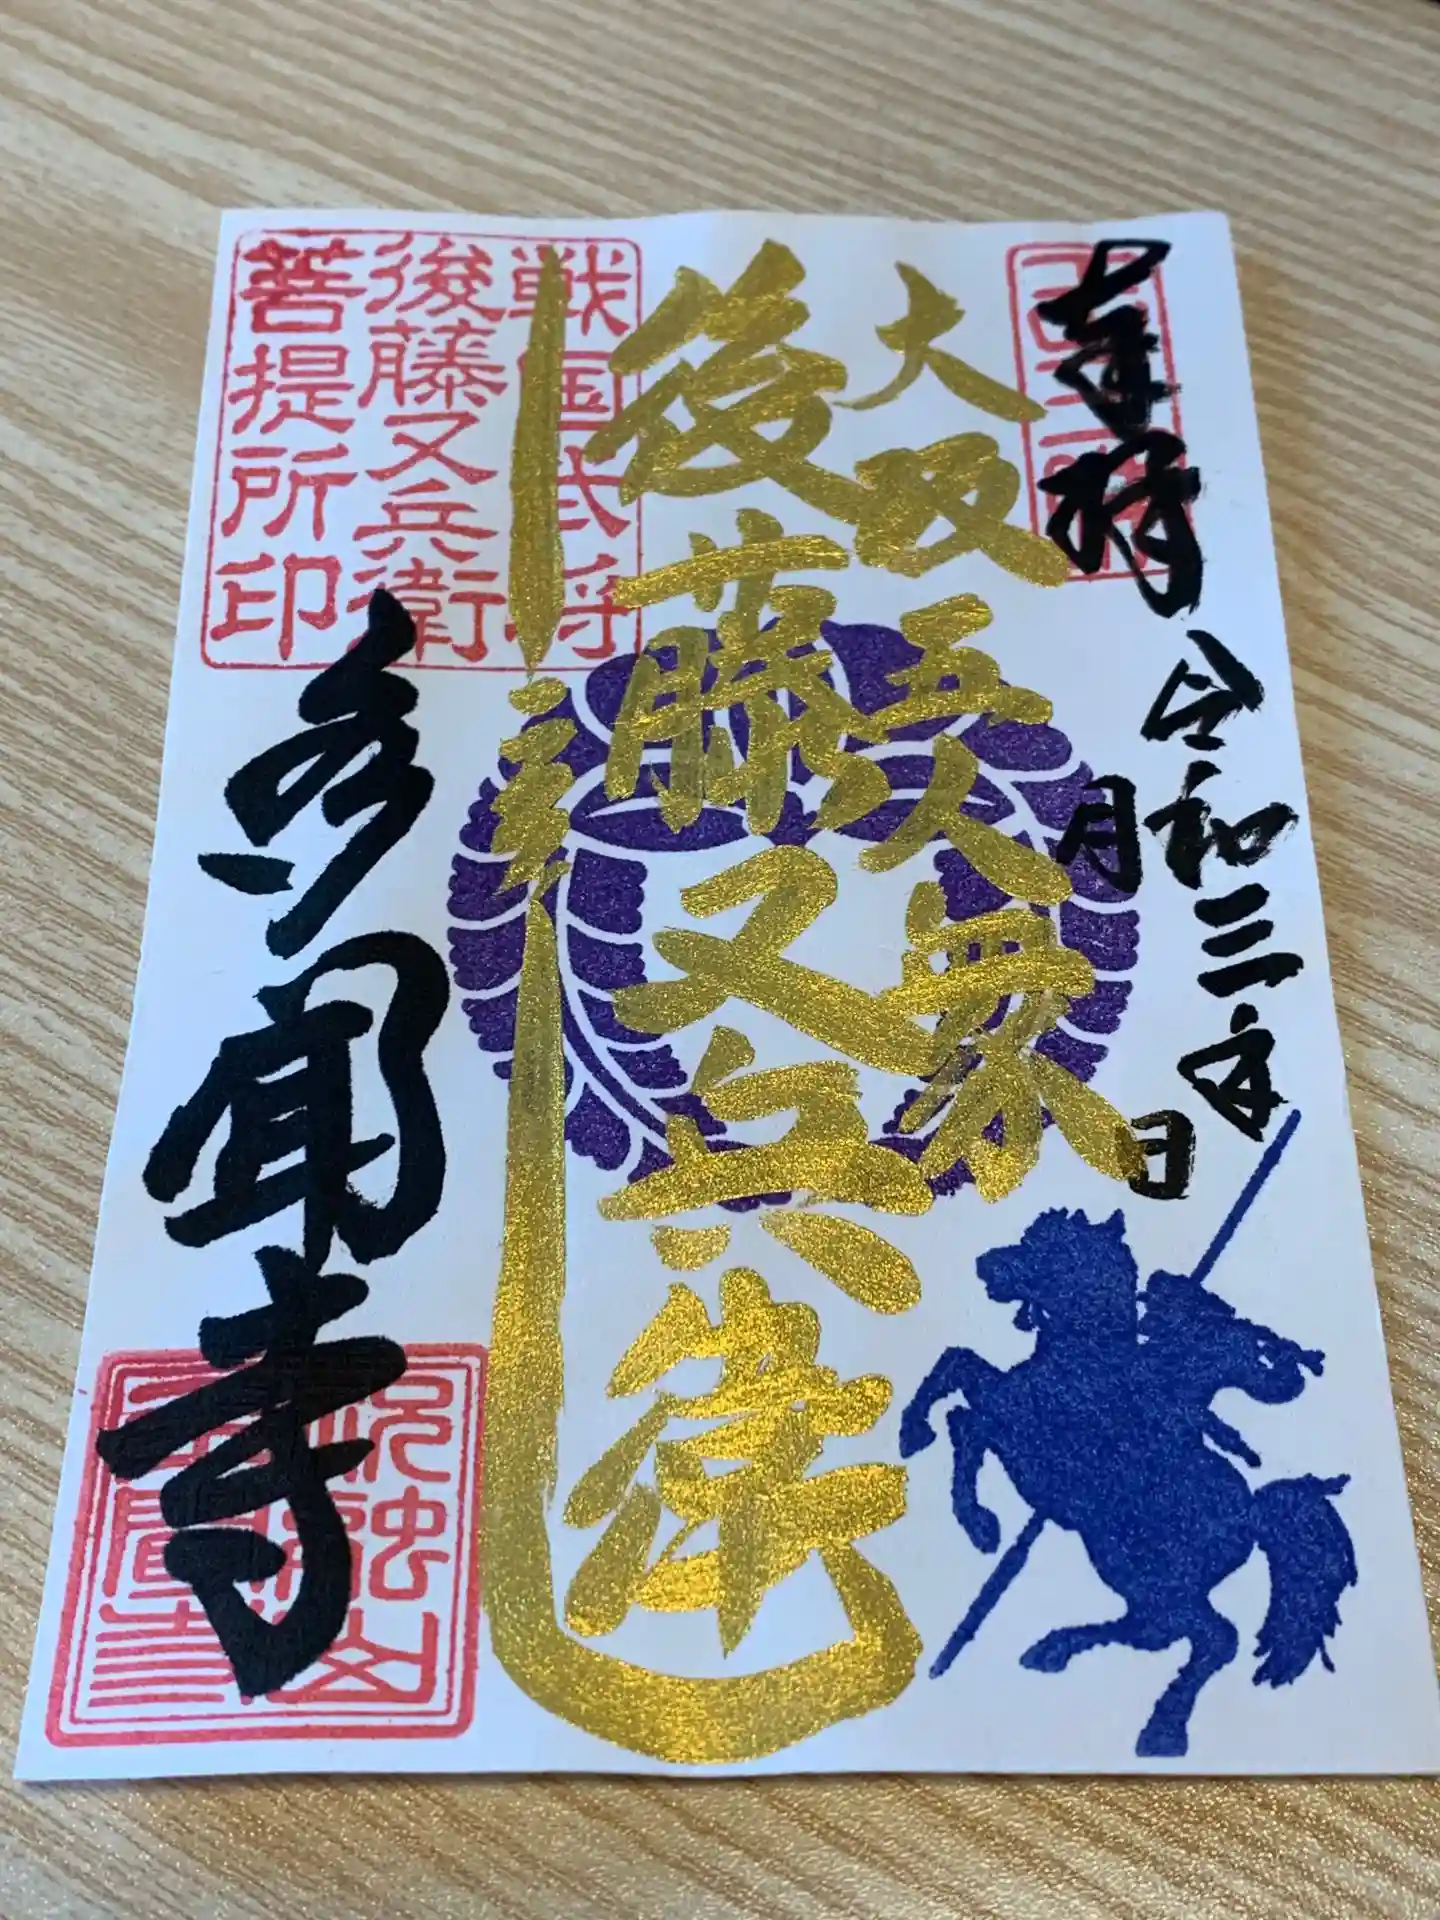 奉拝
令和三年
月
日
大坂五人衆
後藤又兵衛
戦国武将
後藤又兵衛
菩提所印
多聞寺
祝融山
多聞寺